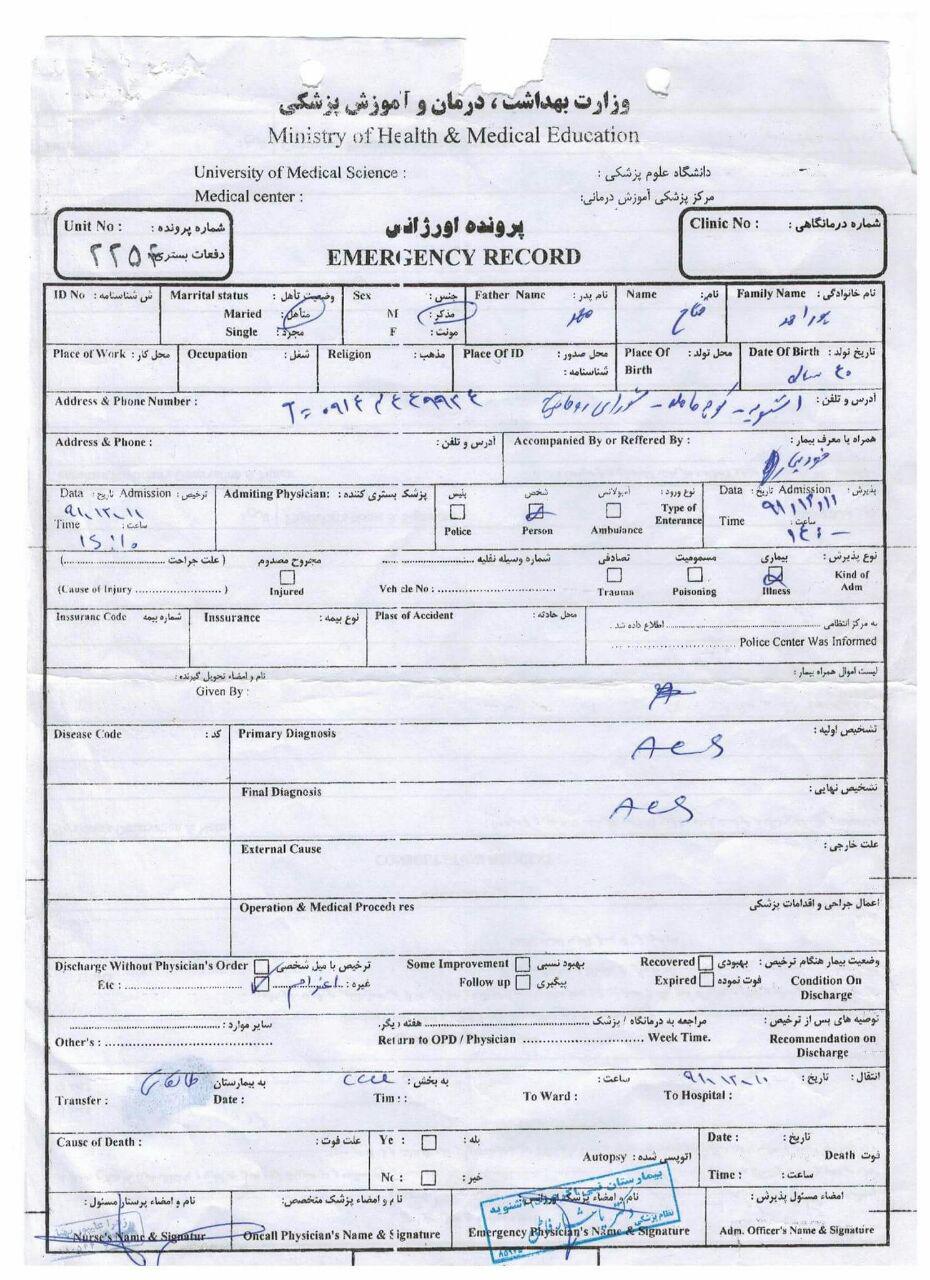 وزارت بهداشت، درمان و آموزش پزشکی
Ministry of Health & Medical Education
University of Medical Science : دانشگاه علوم پزشکی :
Medical center : مرکز پزشکی آموزش درمانی:
Unit No : شماره پرونده :
۲۲۵۴ دفعات بستری
پرونده اورژانس
EMERGENCY RECORD
Clinic No : شماره درمانگاهی :
ID No ش شناسنامه : Marrital status وضعیت تأهل : Sex جنس : Father Name نام پدر: Name نام: Family Name نام خانوادگی :
Maried متأهل : M مذکر :
Single مجرد: F مونث :
Place of Work محل کار : Occupation شغل : Religion مذهب : Place Of ID محل صدور : Place Of محل تولد : Date Of Birth تاریخ تولد :
شناسنامه : Birth ۴۰ ساله
Address & Phone Number : آدرس و تلفن :
اشنویه -
Address & Phone : آدرس و تلفن : Accompanied By or Reffered By : همراه یا معرف بیمار :
Data تاریخ : Admission ترخیص : Admiting Physician: پزشک بستری کننده : پلیس شخص آمبولانس نوع ورود : Data تاریخ : Admission پذیرش :
۹۱،۱۲،۱۱ Police Person Ambulance Type of Enterance ۹۱،۱۲،۱۱
Time ساعت : Time ساعت :
۱۵:۱۰
علت جراحت ( مجروح مصدوم شماره وسیله نقلیه تصادفی مسمومیت بیماری نوع پذیرش :
(Cause of Injury ) Injured Vehcle No : Trauma Poisoning Illness Kind of Adm
Inssuranc Code شماره بیمه Inssurance نوع بیمه : Plase of Accident محل حادثه : به مرکز انتظامی اطلاع داده شد .
Police Center Was Informed
نام و امضاء تحویل گیرنده : لیست اموال همراه بیمار :
Given By :
Disease Code کد : Primary Diagnosis تشخیص اولیه :
ACS
Final Diagnosis تشخیص نهایی :
ACS
External Cause علت خارجی :
Operation & Medical Procedures اعمال جراحی و اقدامات پزشکی
Discharge Without Physician's Order ترخیص با میل شخصی Some Improvement بهبود نسبی Recovered بهبودی وضعیت بیمار هنگام ترخیص :
Etc : اعزام غیره : Follow up پیگیری Expired فوت نموده Condition On Discharge
سایر موارد : مراجعه به درمانگاه / پزشک هفته دیگر. توصیه های پس از ترخیص :
Other's : Return to OPD / Physician Week Time. Recommendation on Discharge
طالقانی به بیمارستان CCU به بخش : ساعت : ۹۱،۱۲،۱۰ تاریخ : انتقال :
Transfer : Date : Tim : : To Ward : To Hospital :
Cause of Death : علت فوت : Ye : بله : Autopsy : اتوپسی شده Date : تاریخ : Death فوت
Nc : خیر : Time : ساعت :
نام و امضاء پرستار مسئول : نام و امضاء پزشک متخصص: نام و امضاء پزشک اورژانس: امضاء مسئول پذیرش :
Nurse's Name & Signatur Oncall Physician's Name & Signature Emergency Physician's Name & Signature Adm. Officer's Name & Signature